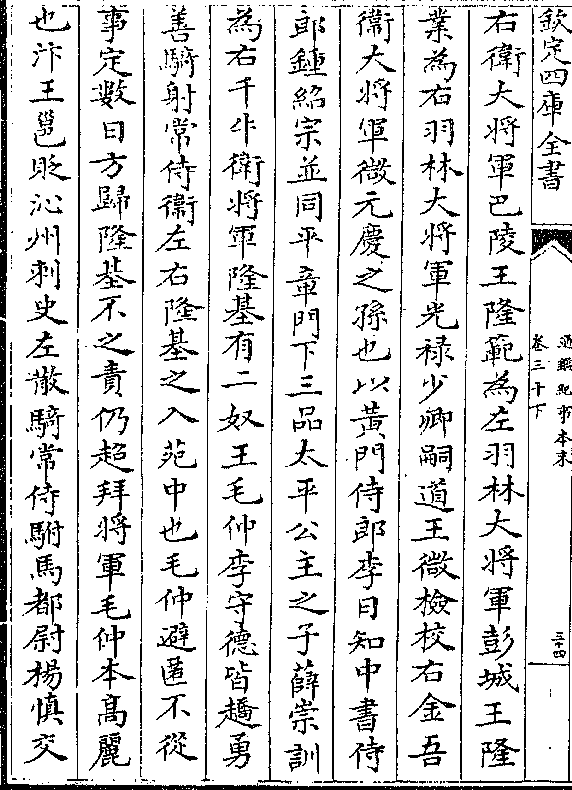 欽定四庫全書
通鑑紀事本末
卷三十下
三十四
右衛大將軍巴陵王隆範為左羽林大將軍彭城王隆
業為右羽林大將軍光禄少卿嗣道王微檢校右金吾
衛大將軍微元慶之孫也以黄門侍郎李日知中書侍
郎鍾紹宗並同平章門下三品太平公主之子薛崇訓
為右千牛衛將軍隆基有二奴王毛仲李守德皆趫勇
善騎射常侍衛左右隆基之入苑中也毛仲避匿不從
事定數日方歸隆基不之責仍超拜將軍毛仲本高麗
也汴王邕貶沁州刺史左散騎常侍駙馬都尉楊慎交